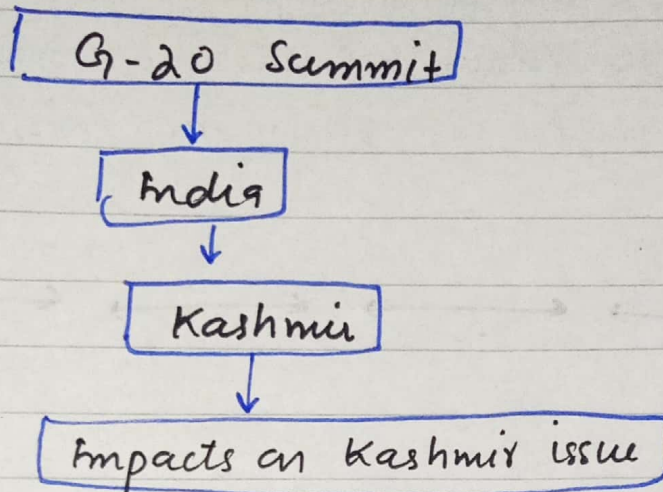 G-20 Summit
India
Kashmir
Impacts on Kashmir issue